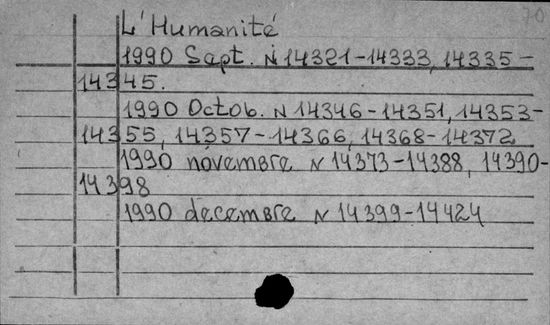 70
L'Humanité
1990 Sept. N 14321-14333, 14335-
14345.
1990 Octob. N 14346-14351, 14353-
14355, 14357-14366, 14368-14372
1990 novembre N 14373-14388, 14390-
14398
1990 decembre N 14399-14424